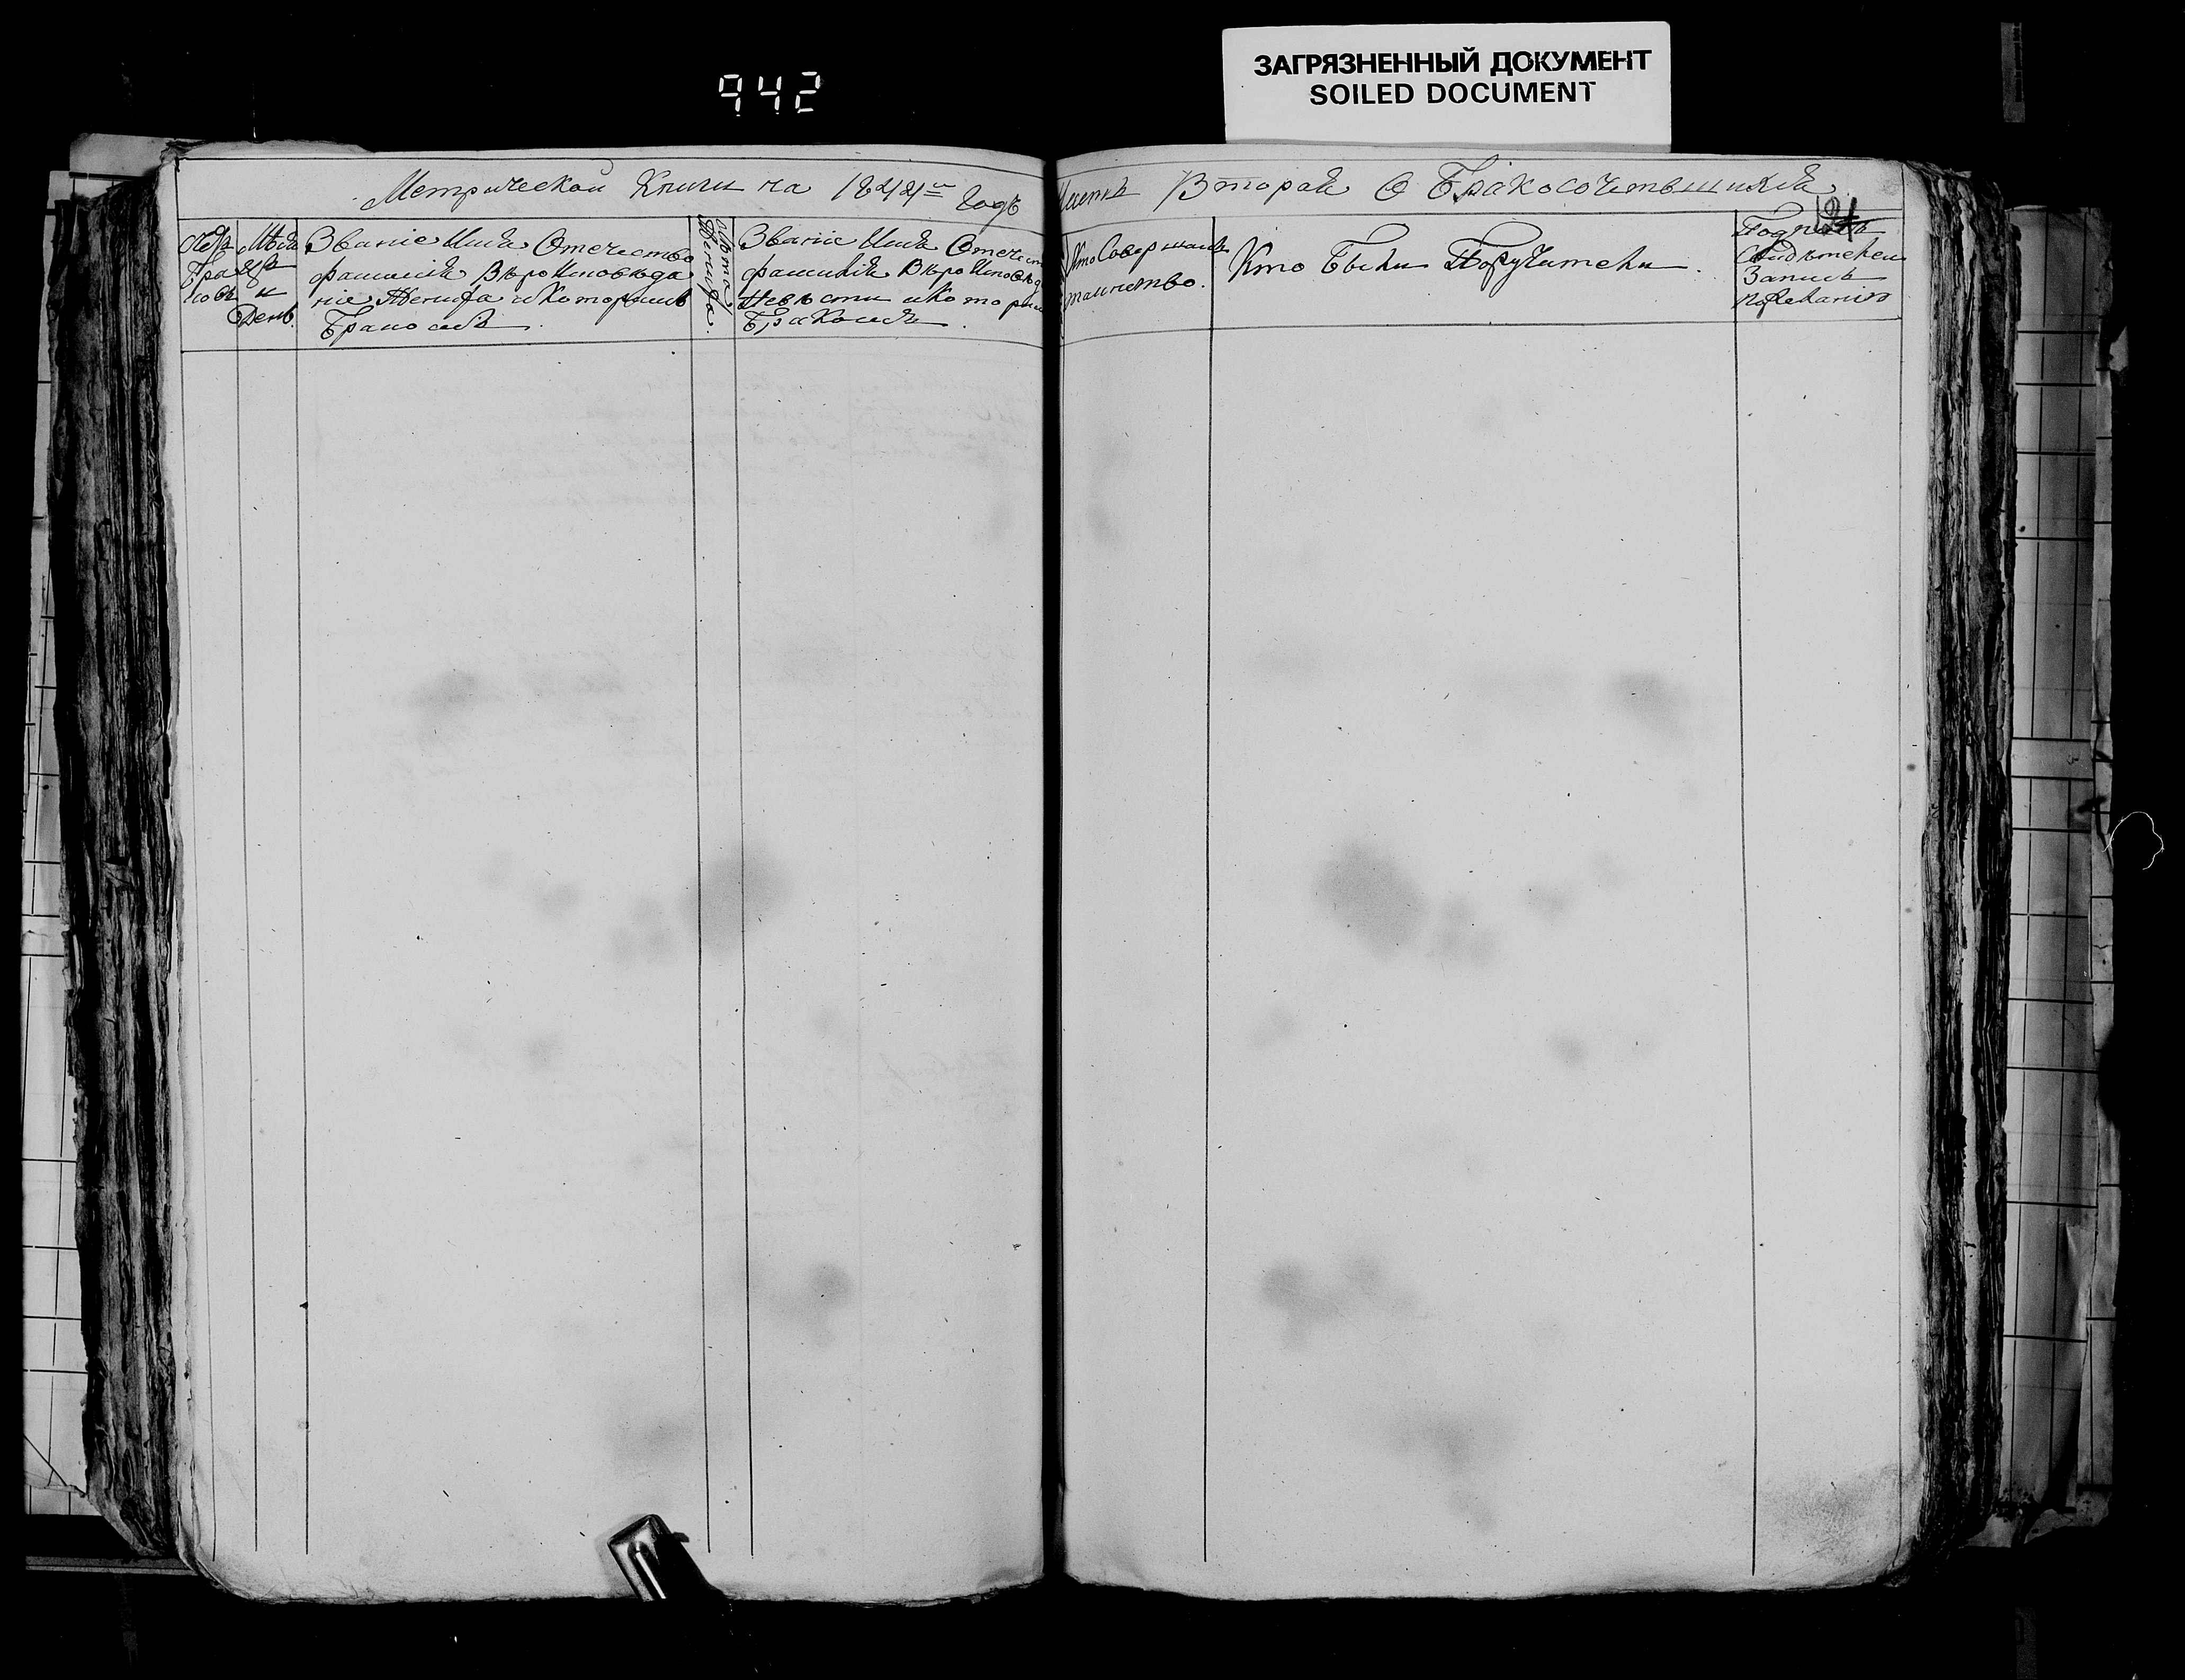 942
ЗАГРЯЗНЕННЫЙ ДОКУМЕНТ
SOILED DOCUMENT
Метрической Книги на 1844й годъ
Часть Вторая О Бракосочетавшихся
Мѣся
цъ
и
День.
Званіе Имя Отечество
фамилія Вѣроисповѣда
ніе Жениха и Которымъ
Бракомъ.
Лѣта
Жениха.
Званіе Имя Отечест
фамилія Вѣроисповѣд
Невѣсты и Которым
Бракомъ.
Кто Совершалъ
таинство.
Кто Были Поручители.
Свидѣтелей
Запись